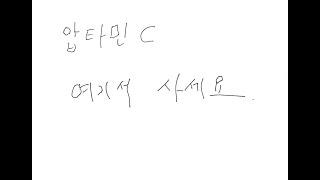 압타민 C
여기서 사세요.